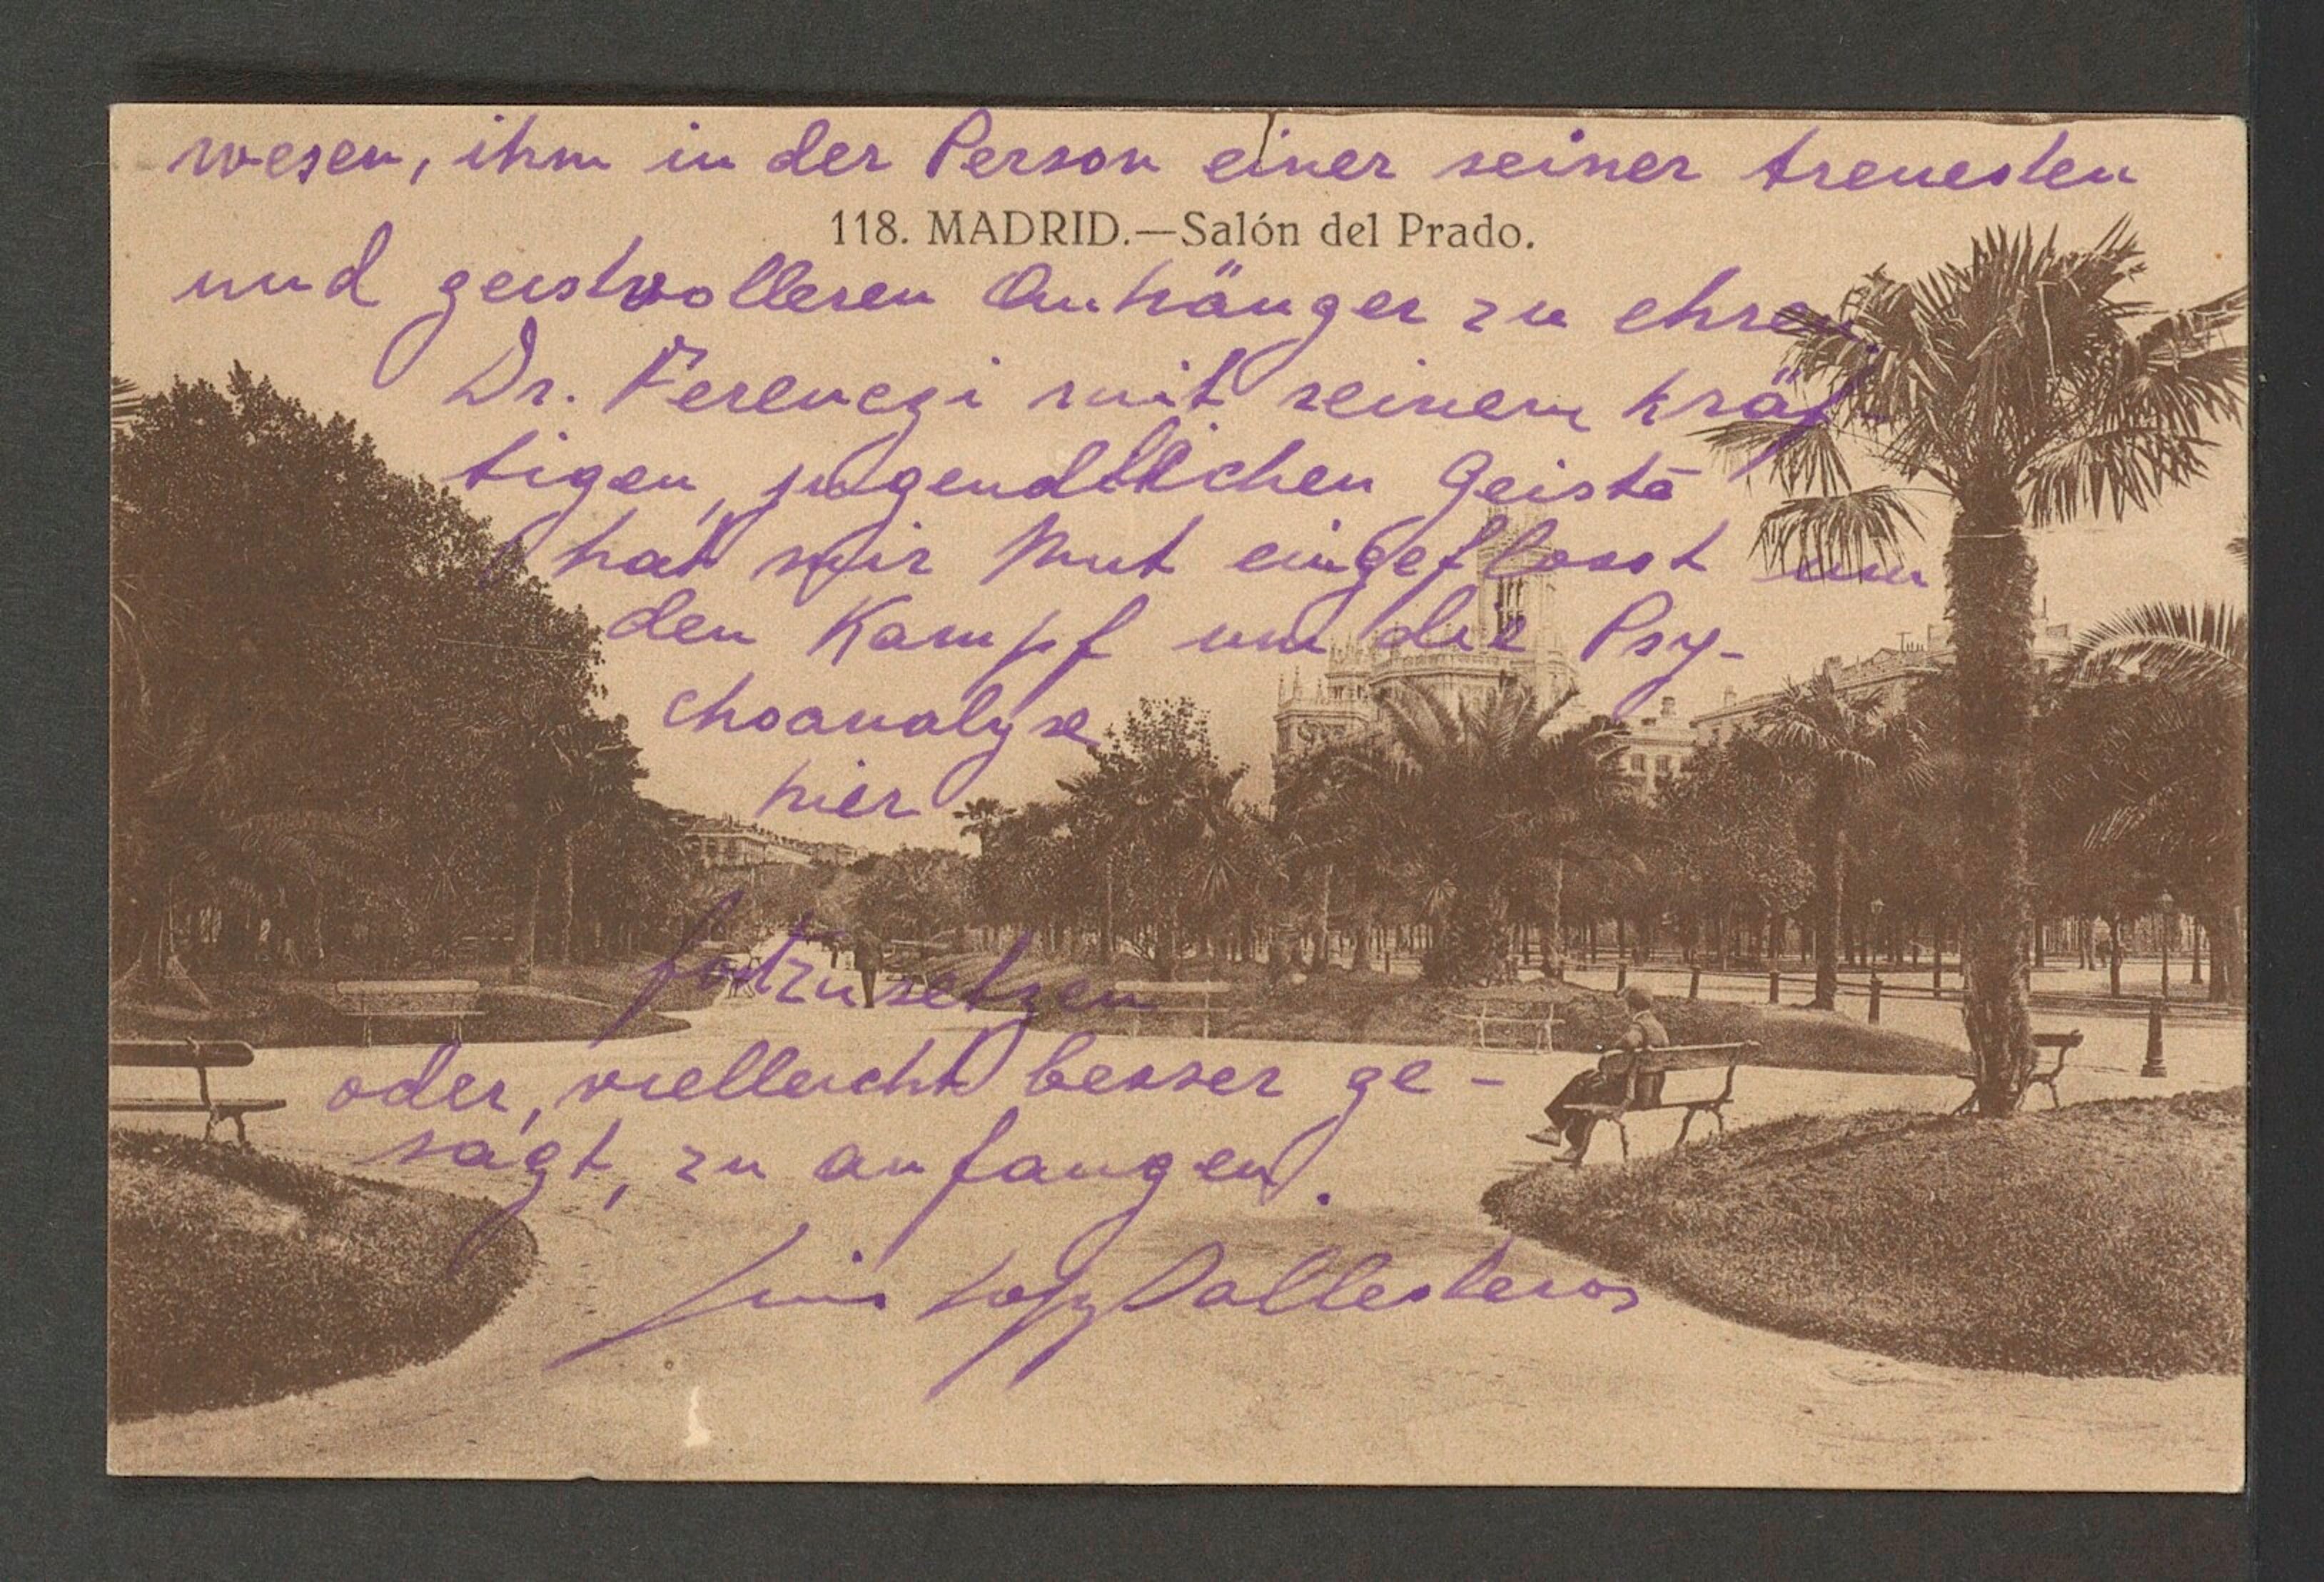 wesen, ihm in der Person einer seiner treuesten
118. MADRID.—Salón del Prado.
und geistvolleren Anhänger zu ehren.
Dr. Ferenczi mit seinem kräf-
tigen, jugendlichen Geiste
hat mir Mut eingeflosst um
den Kampf um die Psy-
choanalyse
hier
fortzusetzen
oder, vielleicht besser ge-
sagt, zu anfangen.
Luis Lopz Ballesteros